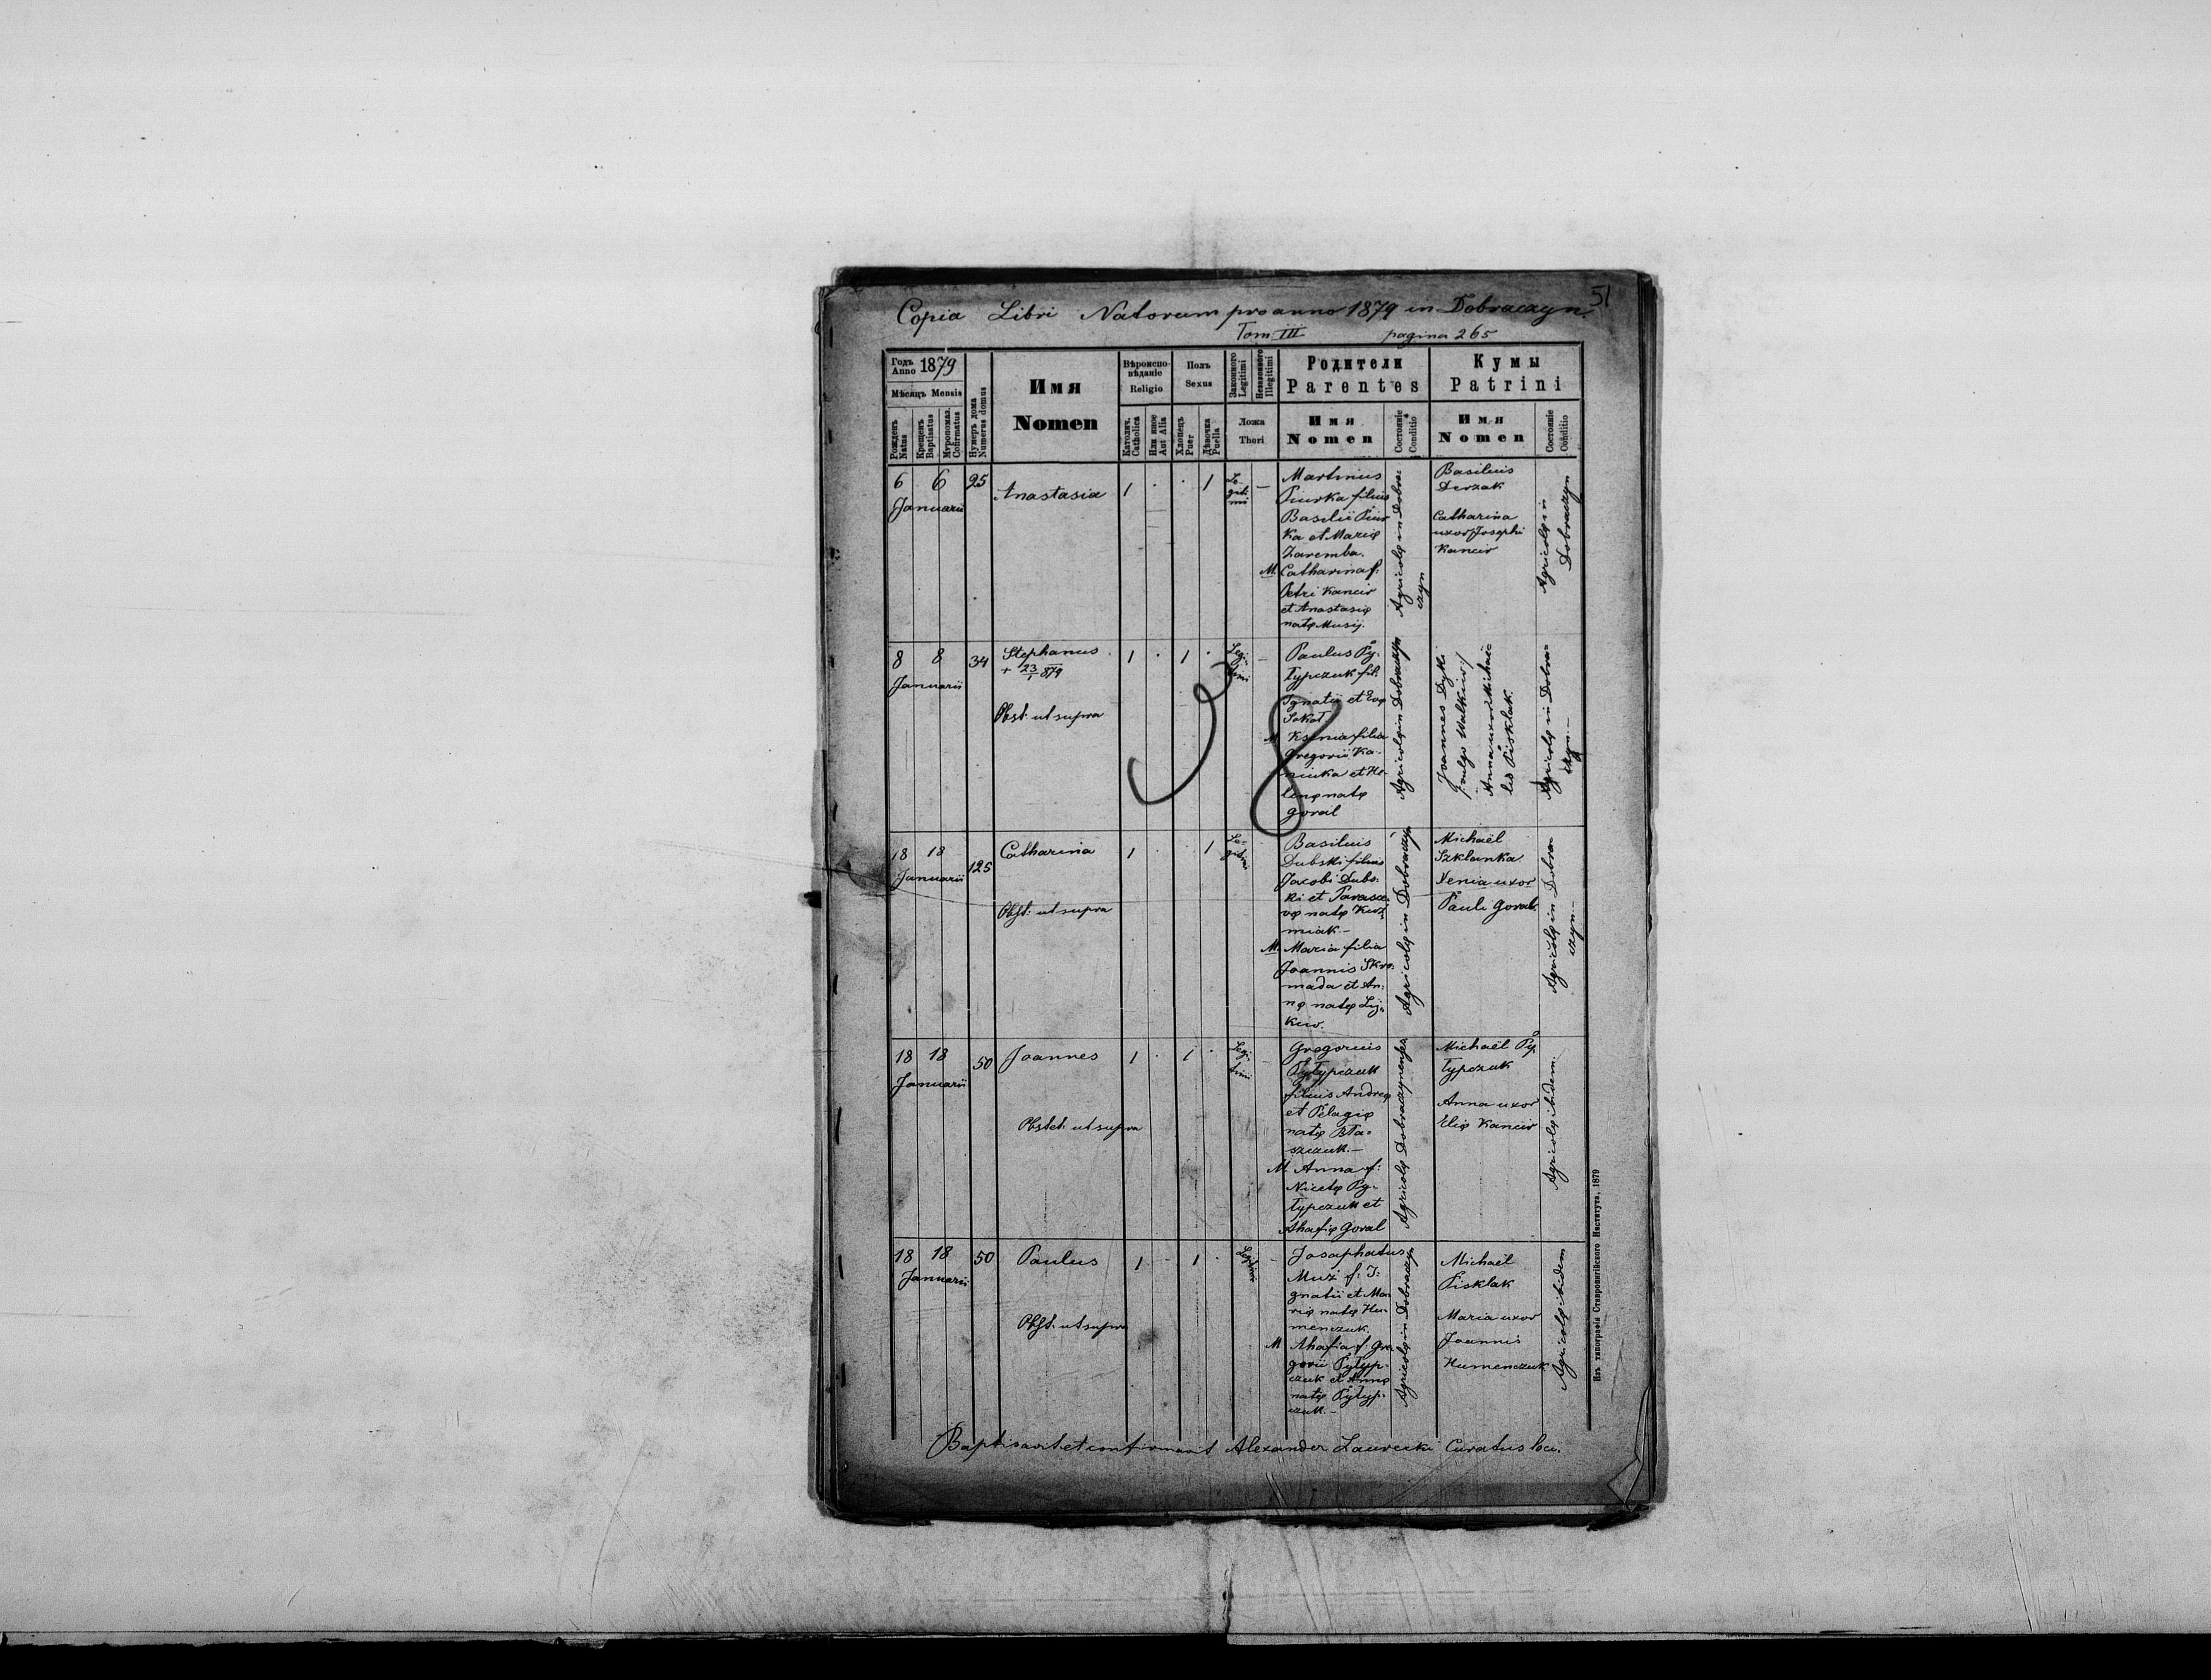 51
Copia Libri Natorum pro anno 1879 in Dobraczyn.
Tom III pagina 265
Годъ Anno 1879
Мѣсяцъ Mensis
Рожденъ Natus
Крещенъ Baptisatus
Мѵропомаз. Cofirmatus
Нумеръ дома Numerus domus
Имя
Nomen
Вѣроиспо-
вѣданіе
Religio
Католич. Catholica
Или иное Aut Alia
Полъ
Sexus
Хлопець Puer
Дѣвочка Puella
Законного Legitimi
Незаконного Illegitimi
Ложа
Thori
Родители
Parentes
Имя
Nomen
Состояніе Conditio
Кумы
Patrini
Имя
Nomen
Состояніе Conditio
6 6 25
Januarii
Anastasia
1 . . 1
Le-
giti-
mi
—
Martinus
Piurka filius
Basilii Piur
ka et Marię
Zaremba.
M. Catharina f:
Petri Kancir
et Anastasię
natę Musij.
Agricolę in Dobra-
czyn
Basilius
Derzak
Catharina
uxor Josephi
Kancir
Agricolę in
Dobraczyn
8 8 34
Januarii
Stephanus
+ 23/1 879
Obst: ut supra
1 . 1 .
Legi-
timi
—
Paulus Py-
łypczuk fil:
Ignatii et Evę
Sokoł
M Ksenia filia
Gregorii Ka-
niuka et He-
lenę natę
Goral
Agricolę in Dobraczyn
Joannes Dyki
/: vulgo Walkiw:/
Anna uxor Michaë-
lis Pisklak.
Agricolę in Dobra-
czyn.—
18 18 125
Januarii
Catharina
Obst: ut supra
1 . 1
Le-
gitimi
Basilius
Dubski filius
Jacobi Dubs-
ki et Parasce-
vę natę Kuź-
miak.—
M. Maria filia
Joannis Skro-
mada et An-
nę natę Lij-
kiw.
Agricolę in Dobraczyn
Michaël
Szklanka
Xenia uxor
Pauli Goral.
Agricolę in Dobra-
czyn.—
18 18 50
Januarii
Joannes
Obstet: ut supra
1 . 1 .
Legi-
timi
—
Gregorius
Pyłypczuk
filius Andreę
et Pelagię
natę Bła-
szczuk.—
M Anna f:
Nicetę Py-
łypczuk et
Ahafię Goral
Agricolę Dobraczynenses
Michaël Py
łypczuk
Anna uxor
Elię Kancir
Agricolę ibidem.
18 18 50
Januarii
Paulus
Obst: ut supra
1 1 .
Legitimi
—
Josaphatus
Muzi f: I-
gnatii et Ma-
rię natę Hu-
menczuk.
M Ahafia f: Gre-
gorii Pyłyp-
czuk et Annę
natę Pyłyp-
czuk.—
Agricolę in Dobraczyn
Michaël
Pisklak
Maria uxor
Joannis
Humenczuk
Agricolę ibidem
Baptisavit et confirmavit Alexander Laurecki Curatus loci.
Изъ типографіи Ставропигійского Института, 1879